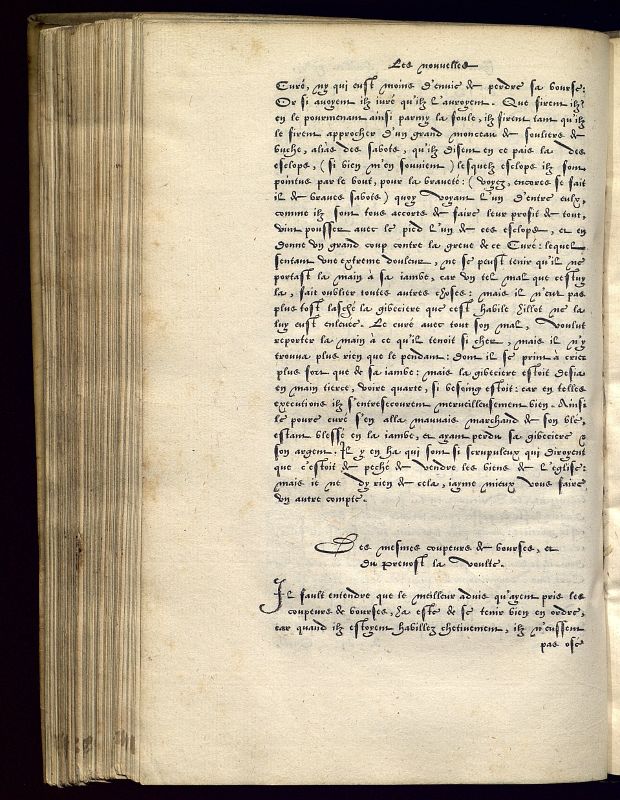 Les nouvelles
Curé, ny qui eust moins d'enuie de perdre sa bourse:
Or si auoyent ilz iuré qu'ilz l'auroyent. Que firent ilz?
en le pourmenant ainsi parmy la foule, ilz firent tant qu'ilz
le firent approcher d'un grand monceau de souliers de
buche, aliàs des sabots, qu'ilz disent en ce païs la des
esclops, (si bien m'en souuient) lesquelz esclops ilz sont
pointus par le bout, pour la braueté: (voyez, encores se fait
il de braues sabots) quoy voyant l'un d'entre eulx,
comme ilz sont tous accorts de faire leur profit de tout,
vint pousser auec le pied l'un de ces esclops, et en
donne vn grand coup contre la greue de ce Curé: lequel
sentant vne extreme douleur, ne se peust tenir qu'il ne
portast la main à sa iambe, car vn tel mal que cestuy
la, fait oublier toutes autres choses: mais il n'eut pas
plus tost lasché la gibeciere que cest habile hillot ne la
luy eust enleuée. Le curé auec tout son mal, voulut
reporter la main à ce qu'il tenoit si cher, mais il n'y
trouua plus rien que le pendant: dont il se print à crier
plus fort que de sa iambe: mais la gibeciere estoit desia
en main tierce, voire quarte, si besoing estoit: car en telles
executions ilz s'entresecourent merueilleusement bien. Ainsi
le poure curé s'en alla mauuais marchand de son blé,
estant blessé en la iambe, et ayant perdu sa gibeciere &
son argent. Il y en ha qui sont si scrupuleux qui diroyent
que c'estoit de peché de vendre les biens de l'eglise:
mais ie ne dy rien de cela, i'ayme mieux vous faire
vn autre compte.
Des mesmes coupeurs de bourses, et
du Preuost la Voulte.
Il fault entendre que le meilleur aduis qu'ayent pris les
coupeurs de bourses, ha esté de se tenir bien en ordre,
car quand ilz estoyent habillez chetiuement, ilz n'eussent
pas osé